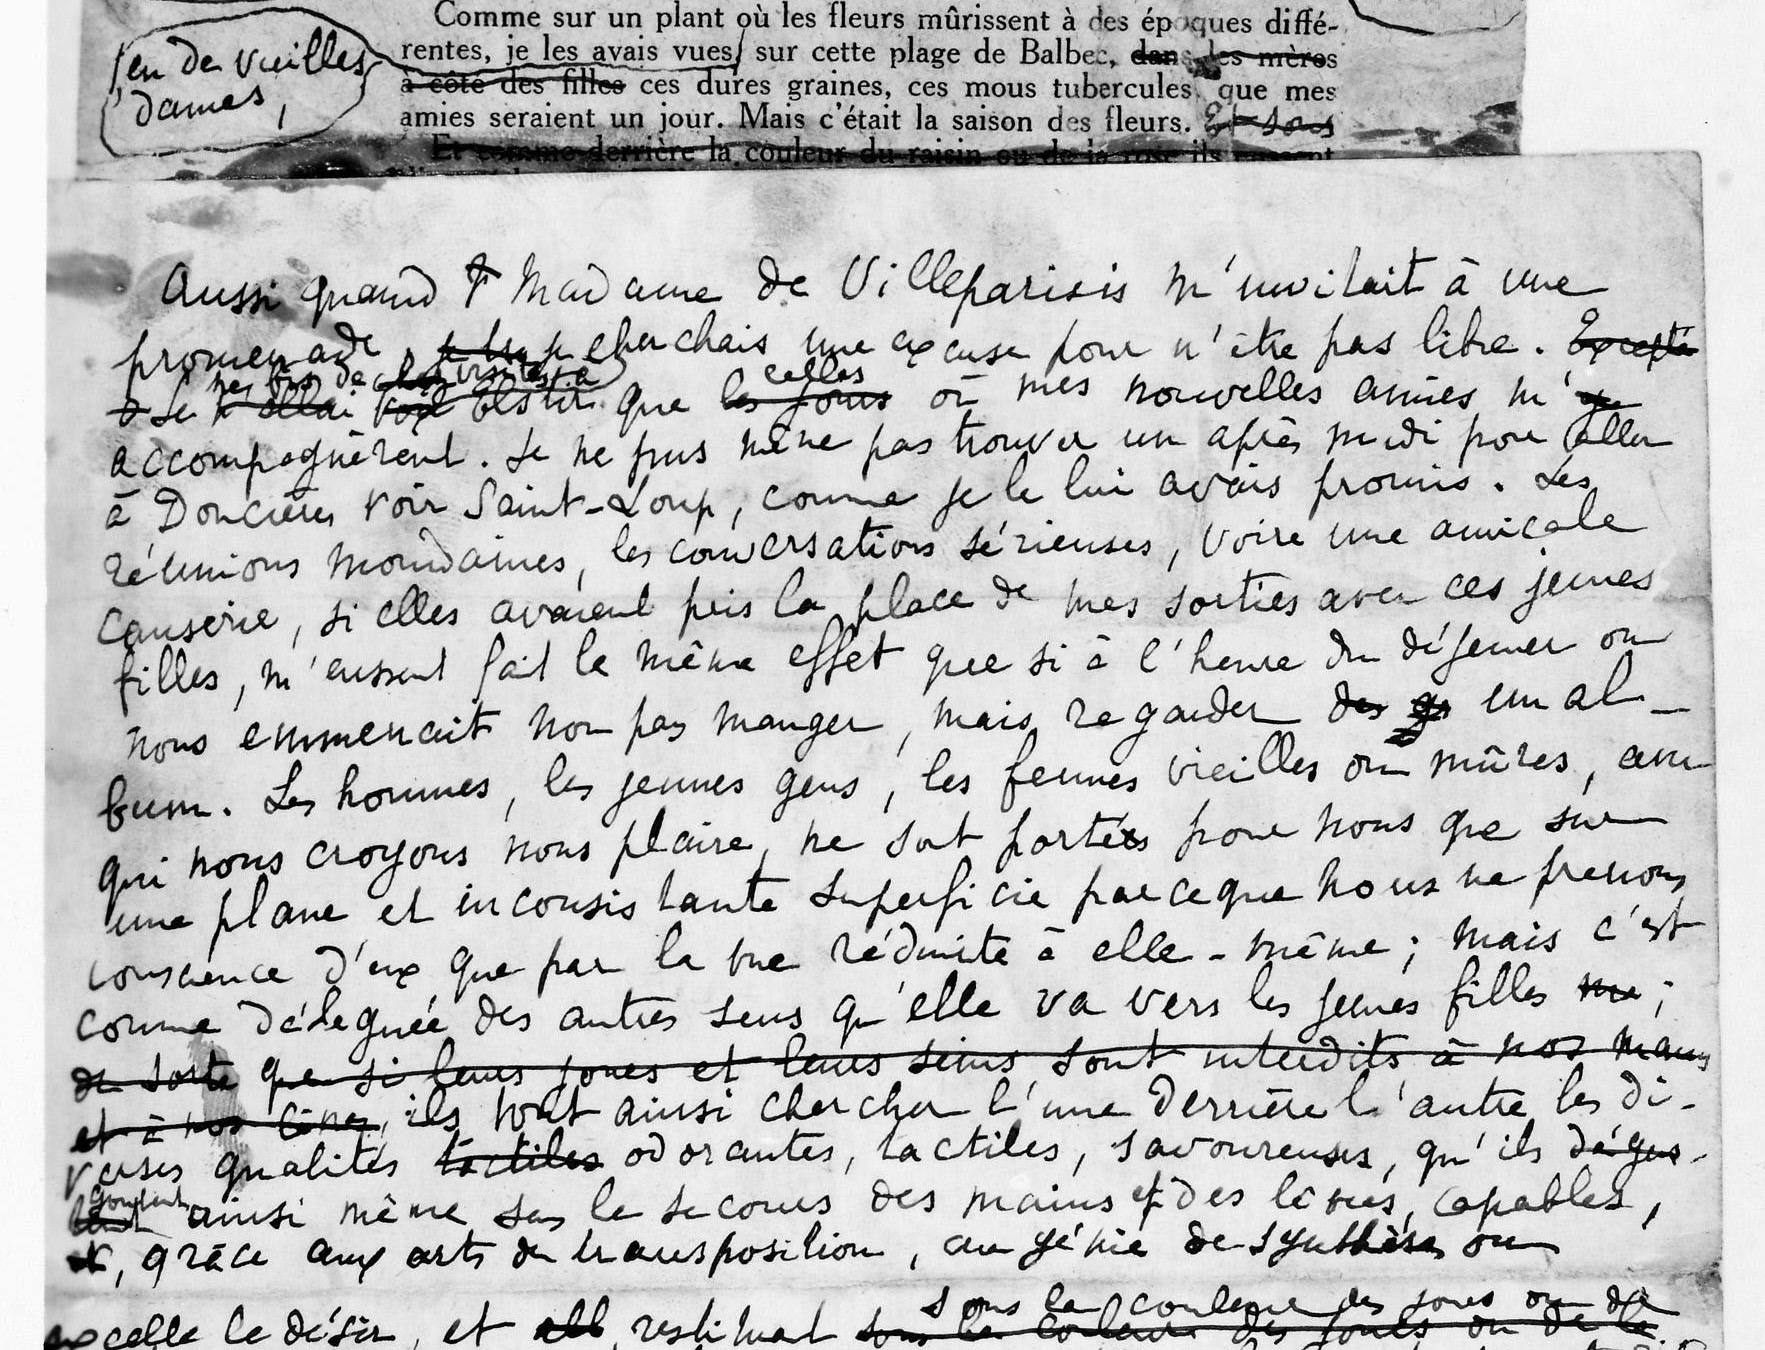 Comme sur un plant où les fleurs mûrissent à des époques diffé-
rentes, je les avais vues, sur cette plage de Balbec, dans les mères
en de vieilles
dames,
à côté des filles ces dures graines, ces mous tubercules, que mes
amies seraient un jour. Mais c'était la saison des fleurs. Et sous
Et comme derrière la couleur du raisin ou de la rose ils
Aussi quand Madame de Villeparisis m'invitait à une
promenade, je cherchais une excuse pour n'être pas libre. Excepté
nes fis de visites à celles
Je n'allai voir Elstir que les jours où mes nouvelles amies m'
accompagnèrent. Je ne pus même pas trouver un après midi pour aller
à Doncières voir Saint-Loup, comme je le lui avais promis. Les
réunions mondaines, les conversations sérieuses, voire une amicale
causerie, si elles avaient pris la place de mes sorties avec ces jeunes
filles, m'eussent fait le même effet que si à l'heure du déjeuner on
nous emmenait non pas manger, mais regarder des un al-
bum. Les hommes, les jeunes gens, les femmes vieilles ou mûres, avec
qui nous croyons nous plaire, ne sont portés pour nous que sur
une plane et inconsistante superficie parce que nous ne prenons
conscience d'eux que par la vue réduite à elle-même ; mais c'est
comme déléguée des autres sens qu'elle va vers les jeunes filles ;
de sorte que si leurs joues et leurs seins sont interdits à nos mains
et à nos lèvres, ils vont ainsi chercher l'une derrière l'autre les di-
verses qualités tactiles odorantes, tactiles, savoureuses, qu'ils dégus-
goûtent
tent ainsi même sans le secours des mains et des lèvres, capables,
et, grâce aux arts de transposition, au génie de synthèse où
sous la couleur des joues ou de la
excelle le désir, et restituant sous la couleur des joues ou de la